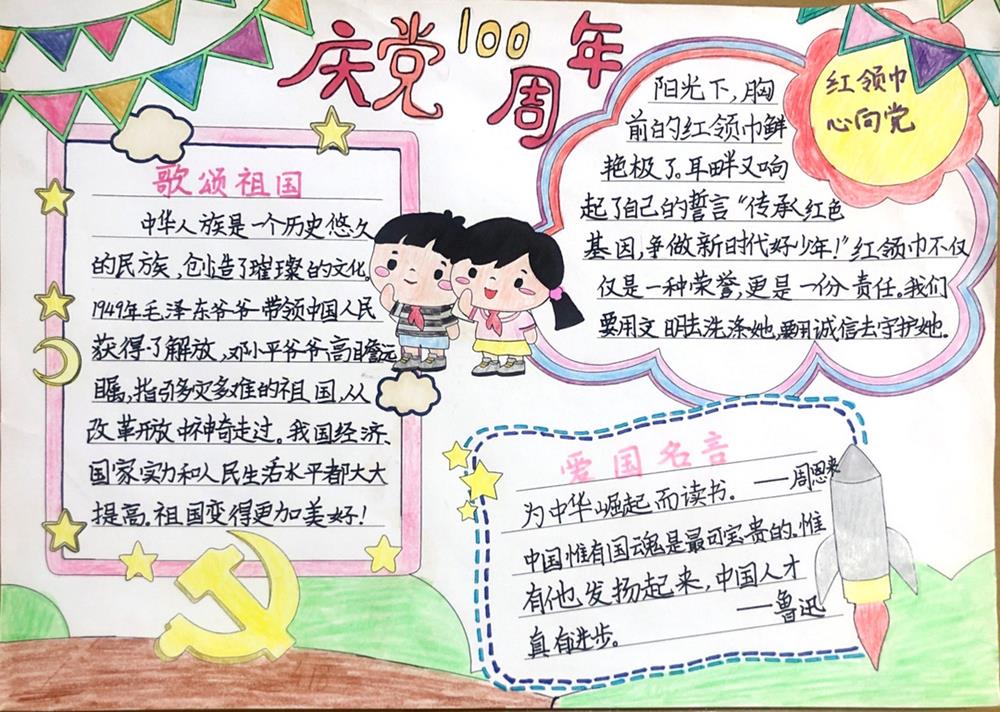 庆党100周年
歌颂祖国
中华人族是一个历史悠久
的民族,创造了璀璨的文化。
1949年毛泽东爷爷带领中国人民
获得了解放,邓小平爷爷高瞻远
瞩,指引多灾多难的祖国,从
改革开放中神奇走过。我国经济、
国家实力和人民生活水平都大大
提高。祖国变得更加美好!
阳光下,胸
前的红领巾鲜
艳极了。耳畔又响
起了自己的誓言“传承红色
基因,争做新时代好少年!”红领巾不仅
仅是一种荣誉,更是一份责任。我们
要用文明去洗涤她,要用诚信去守护她。
红领巾
心向党
爱国名言
为中华崛起而读书。——周恩来
中国惟有国魂是最可宝贵的。惟
有他发扬起来,中国人才
——鲁迅
真有进步。